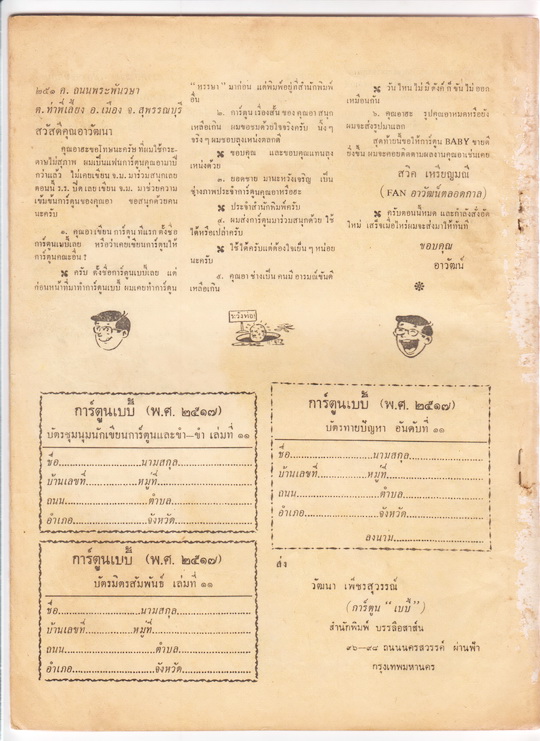 ๒๕๑ ค. ถนนพระพันวษา
ต. ท่าพี่เลี้ยง อ. เมือง จ. สุพรรณบุรี
สวัสดีคุณอาวัฒนา
คุณอาสะขอโทษนะครับ ที่ผมใช้กระ-
ดาษไม่สุภาพ ผมเป็นแฟนการ์ตูนคุณอามาปี
กว่าแล้ว ไม่เคยเขียน จ.ม. มาร่วมสนุกเลย
ตอนนี้ ร.ร. ปิด เลย เขียน จ.ม. มาช่วยความ
เข้มข้นการ์ตูนของคุณอา ขอสนุกด้วยคน
นะครับ
๑. คุณอาเขียน การ์ตูน ทีแรก ตั้งชื่อ
การ์ตูนเบบี้เลย หรือว่าเคยเขียนการ์ตูนให้
การ์ตูนคณะอื่น ?
ครับ ตั้งชื่อการ์ตูนเบบี้เลย แต่
ก่อนหน้าที่มาทำการ์ตูนเบบี้ ผมเคยทำการ์ตูน
" หรรษา " มาก่อน แต่พิมพ์อยู่ที่สำนักพิมพ์
อื่น
๒. การ์ตูน เรื่องสั้น ของ คุณอา สนุก
เหลือเกิน ผมขอชมด้วยใจจริงครับ
จริง ๆ ผมชอบลุงเหน่งตลกดี
ขอบคุณ และขอบคุณแทนลุง
เหน่งด้วย
๓. ยอดชาย มานะหวังเจริญ เป็น
ช่างภาพประจำการ์ตูนคุณอาหรือฮะ
ประจำสำนักพิมพ์ครับ
๔. ผมส่งการ์ตูนมาร่วมสนุกด้วย ใช้
ได้หรือเปล่าครับ
ใช้ได้ครับแต่ต้องใจเย็น ๆ หน่อย
นะครับ
๕. คุณอา ช่างเป็น คนมี อารมณ์ขันดี
เหลือเกิน
วันไหน ไม่มี ตังค์ ก็ ขัน ไม่ ออก
เหมือนกัน
๖. คุณอาฮะ รูปคุณอาหมดหรือยัง
ผมจะส่งรูปมาแลก
สุดท้ายนี้ขอให้การ์ตูน BABY ขายดี
ยิ่งขึ้น ผมจะคอยติดตามผลงานคุณอาเช่นเคย
สวิต เหรียญมณี
(FAN อาวัฒน์ตลอดกาล)
ครับตอนนี้หมด และกำลังสั่งอัด
ใหม่ เสร็จเมื่อไหร่ผมจะส่งมาให้ทันที
ขอบคุณ
อาวัฒน์
ระวังท่อ
การ์ตูนเบบี้ (พ.ศ. ๒๕๑๗)
บัตรชุมนุมนักเขียนการ์ตูนและขำ–ขำ เล่มที่ ๑๑
ชื่อ....................นามสกุล....................
บ้านเลขที่....................หมู่ที่....................
ถนน....................ตำบล....................
อำเภอ....................จังหวัด....................
การ์ตูนเบบี้ (พ.ศ. ๒๕๑๗)
บัตรมิตรสัมพันธ์ เล่มที่ ๑๑
ชื่อ....................นามสกุล....................
บ้านเลขที่....................หมู่ที่....................
ถนน....................ตำบล....................
อำเภอ....................จังหวัด....................
การ์ตูนเบบี้ (พ.ศ. ๒๕๑๗)
บัตรทายปัญหา อันดับที่ ๑๑
ชื่อ....................นามสกุล....................
บ้านเลขที่....................หมู่ที่....................
ถนน....................ตำบล....................
อำเภอ....................จังหวัด....................
ลงนาม....................
ส่ง
วัฒนา เพ็ชรสุวรรณ์
(การ์ตูน " เบบี้ ")
สำนักพิมพ์ บรรลือสาส์น
๙๖–๙๘ ถนนนครสวรรค์ ผ่านฟ้า
กรุงเทพมหานคร